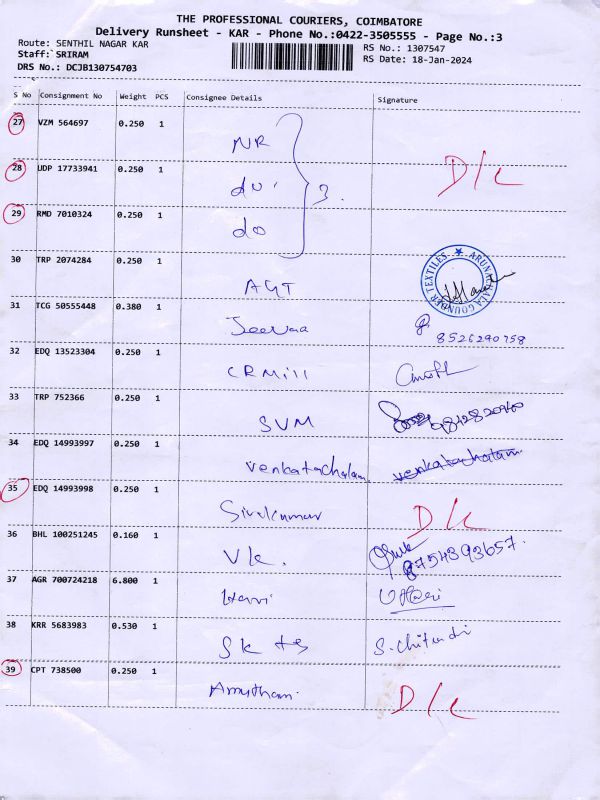 THE PROFESSIONAL COURIERS, COIMBATORE
Delivery Runsheet - KAR - Phone No.:0422-3505555 - Page No.:3
Route: SENTHIL NAGAR KAR
RS No.: 1307547
Staff: SRIRAM
RS Date: 18-Jan-2024
DRS No.: DCJB130754703
S No Consignment No Weight PCS Consignee Details Signature
27 VZM 564697 0.250 1 NR
28 UDP 17733941 0.250 1 do 3. D/L
29 RMD 7010324 0.250 1 do
30 TRP 2074284 0.250 1 AGT ARUNACHALA GOUNDER TEXTILES
31 TCG 50555448 0.380 1 Jeevaa 8526290758
32 EDQ 13523304 0.250 1 CRMill
33 TRP 752366 0.250 1 SVM
34 EDQ 14993997 0.250 1 Venkatachalam venkatachalam
35 EDQ 14993998 0.250 1 Sivakumar D/L
36 BHL 100251245 0.160 1 Vk. 8754393657.
37 AGR 700724218 6.800 1 Hari
38 KRR 5683983 0.530 1 SK tex
39 CPT 738500 0.250 1 Amutham. D/L